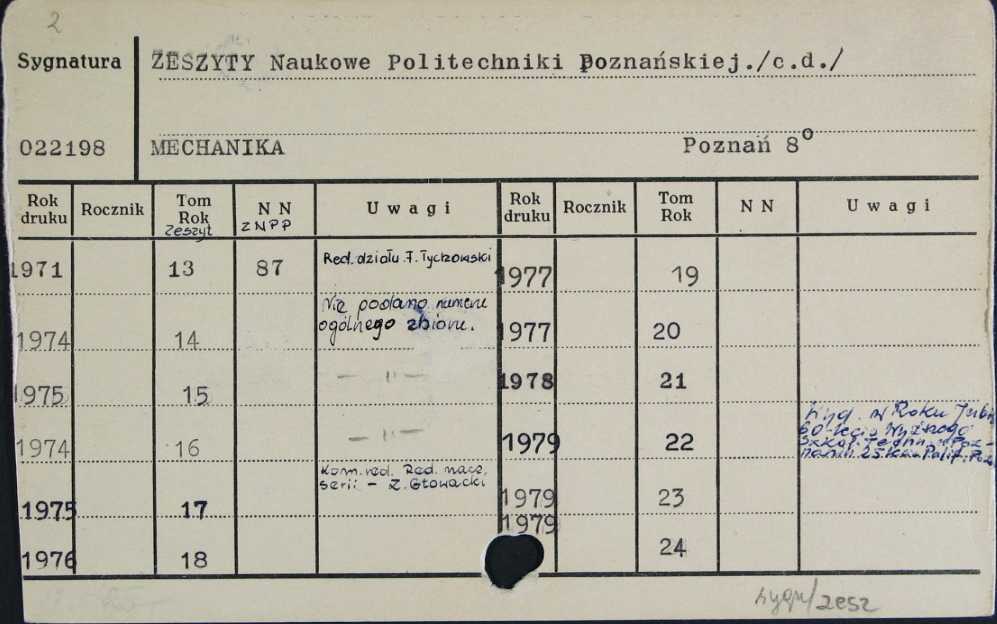 2
Sygnatura ZESZYTY Naukowe Politechniki Poznańskiej./c.d./
022198 MECHANIKA Poznań 8°
Rok druku Rocznik Tom Rok Zeszyt N N ZNPP Uwagi Rok druku Rocznik Tom Rok N N Uwagi
1971 13 87 Red. działu F. Tychowski 1977 19
1974 14 Nie podano numeru ogólnego zbioru. 1977 20
1975 15 — " — 1978 21
1974 16 — " — 1979 22 Wyd. w Roku Jub. 60-lecia Wyższego Szkol. Techn. w Poznaniu 25 lecia Polit. Poz
1975 17 Kom. red. Red. nacz. serii - Z. Głowacki 1979 23
1976 18 1979 24
sygn/zesz